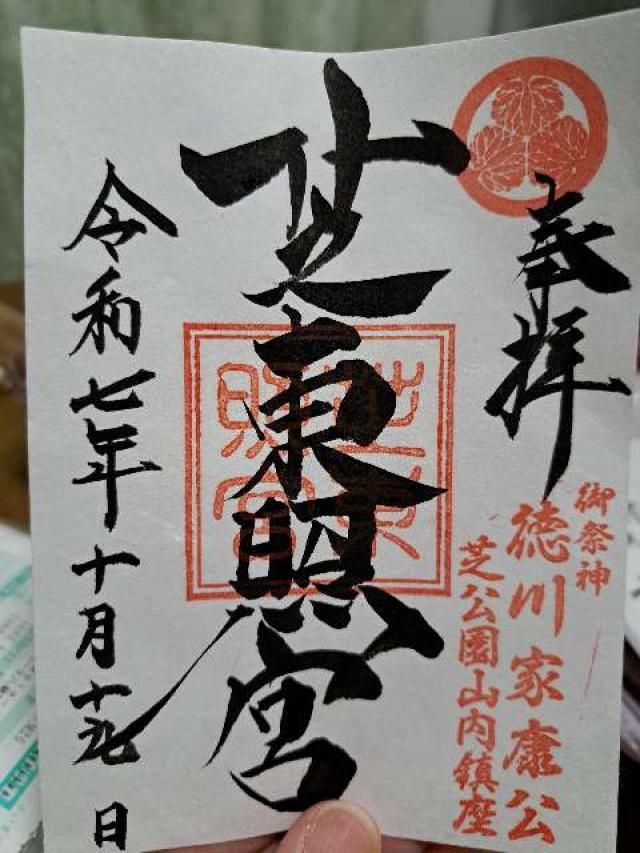 奉拝
御祭神
徳川家康公
芝公園山内鎮座
芝東照宮
芝東照宮
令和七年十月十九日